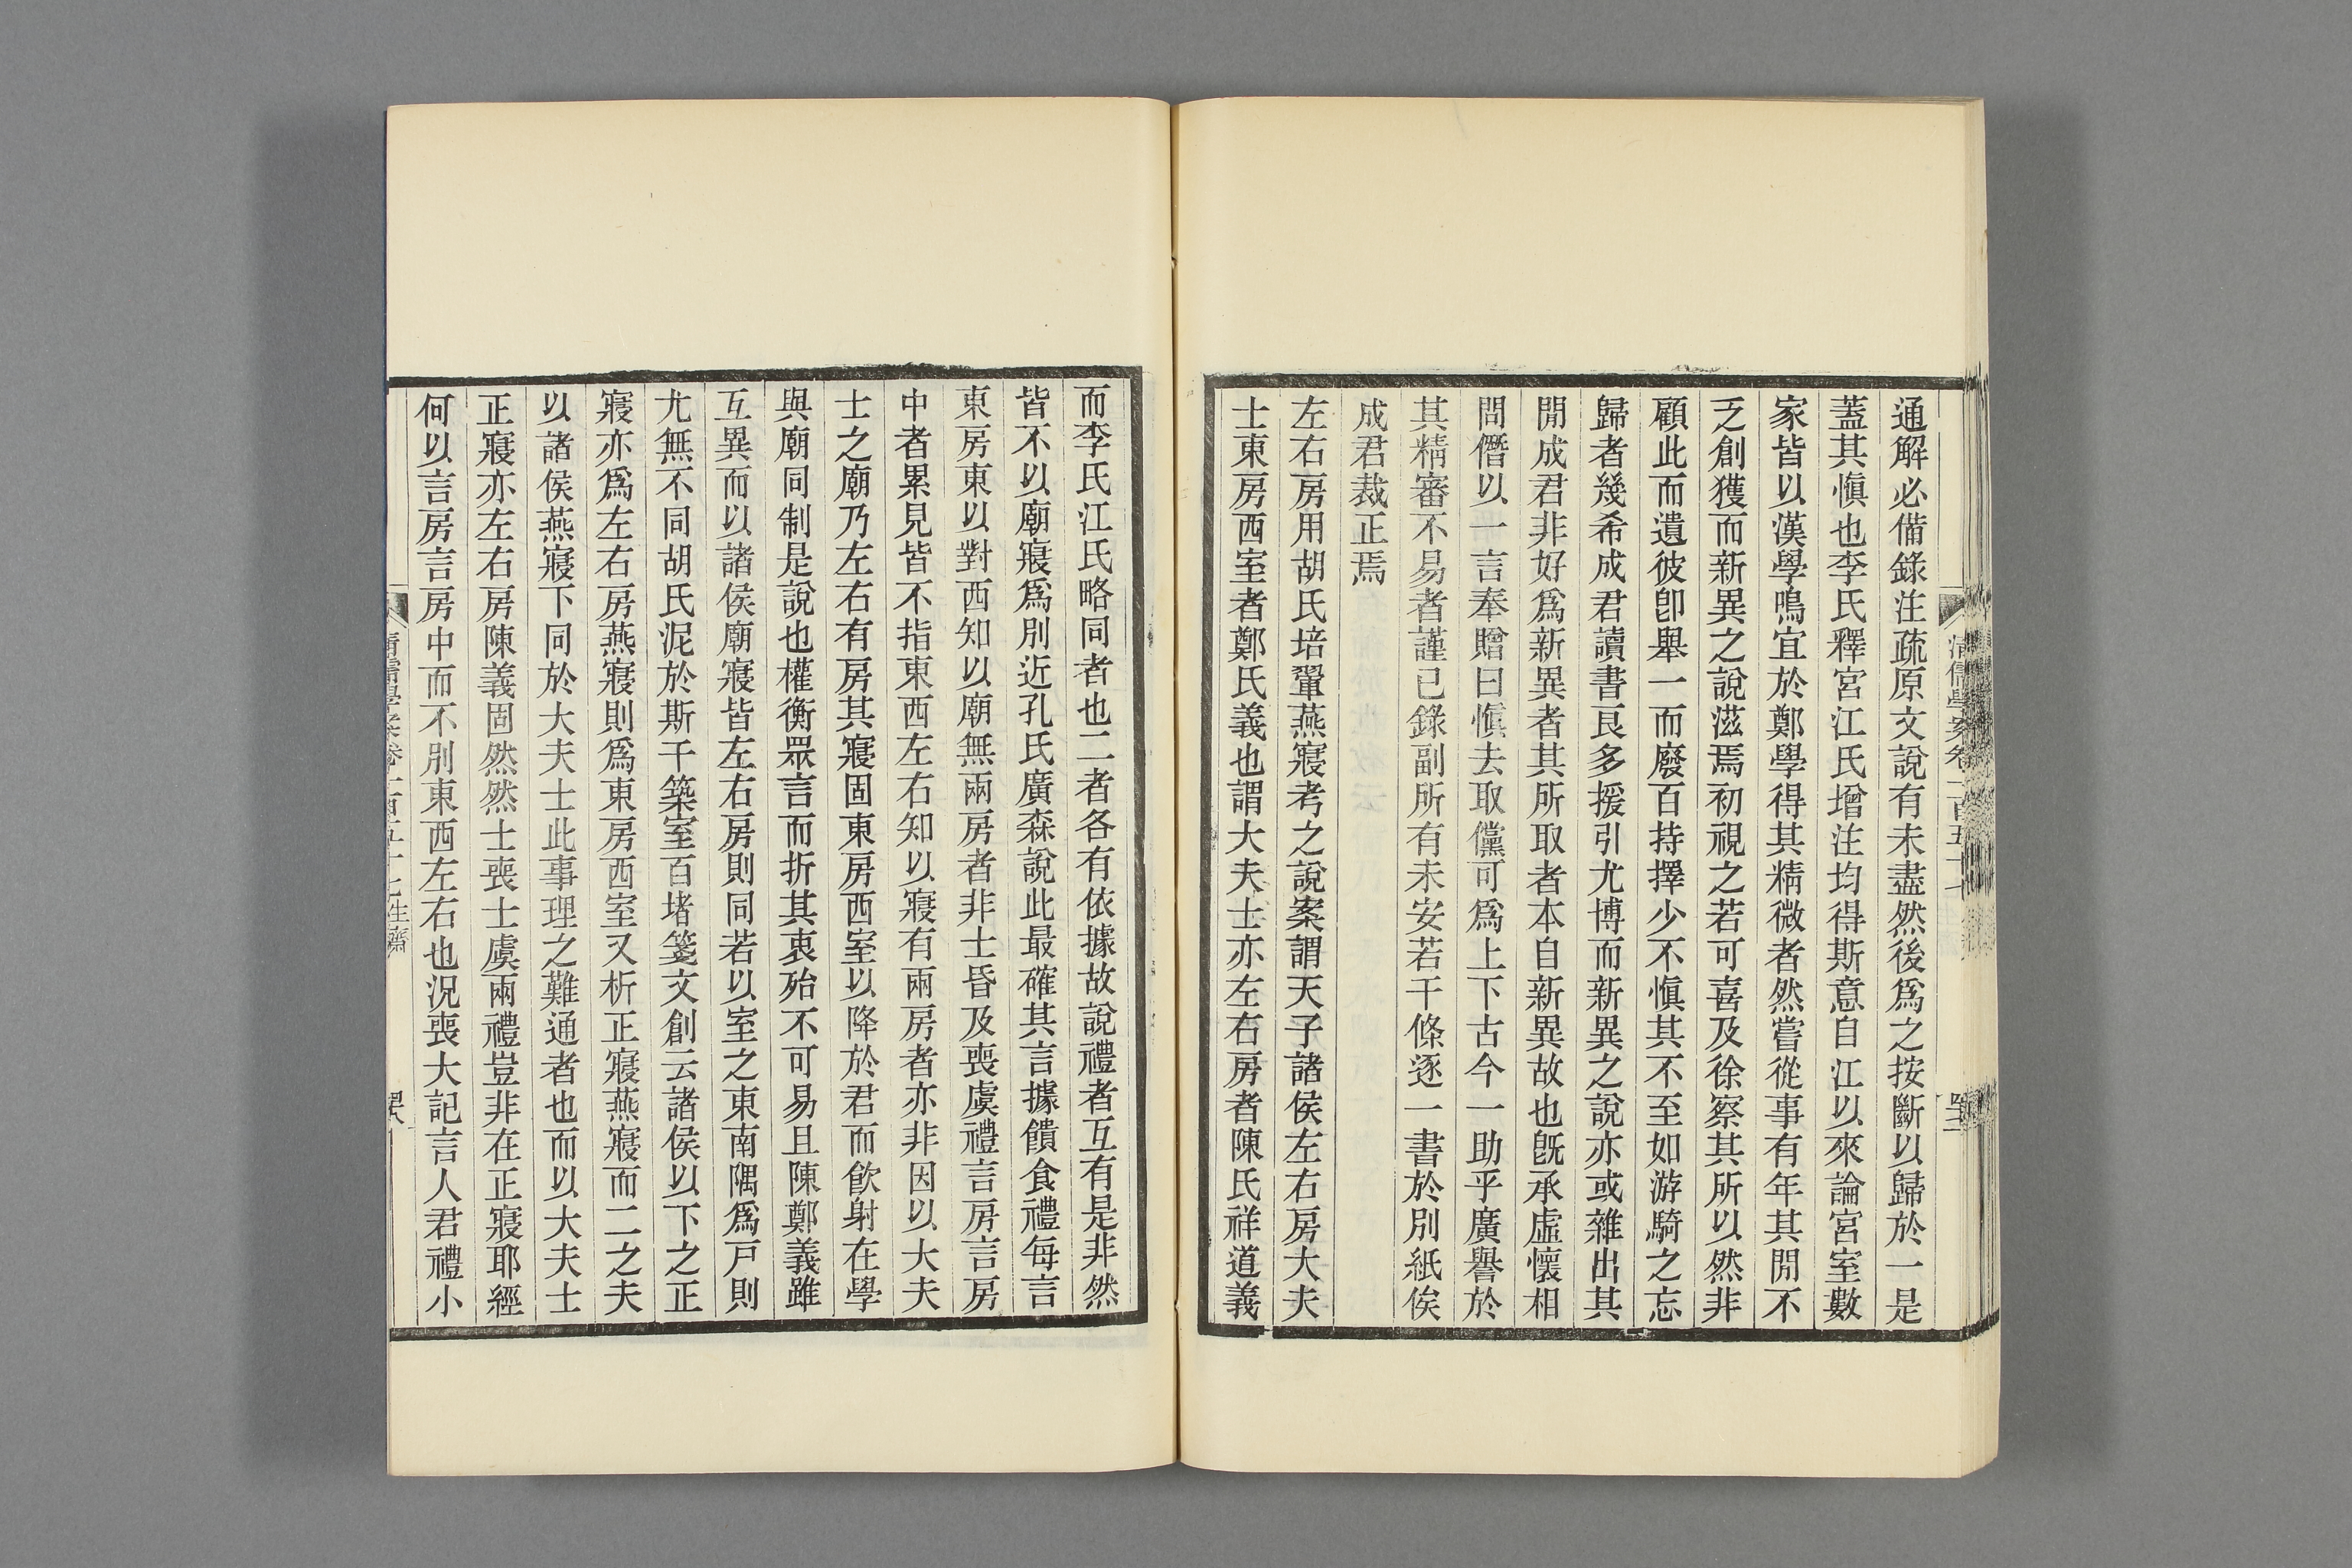 通解必備錄注疏原文說有未盡然後爲之按斷以歸於一是
蓋其愼也李氏釋宮江氏增注均得斯意自江以來論宮室數
家皆以漢學鳴宜於鄭學得其精微者然嘗從事有年其閒不
乏創獲而新異之說滋焉初視之若可喜及徐察其所以然非
顧此而遺彼卽舉一而廢百持擇少不愼其不至如游騎之忘
歸者幾希成君讀書良多援引尤博而新異之說亦或雜出其
閒成君非好爲新異者其所取者本自新異故也旣承虛懷相
問僭以一言奉贈曰愼去取儻可爲上下古今一助乎廣譽於
其精審不易者謹已錄副所有未安若干條逐一書於別紙俟
成君裁正焉
左右房用胡氏培翬燕寢考之說案謂天子諸侯左右房大夫
士東房西室者鄭氏義也謂大夫士亦左右房者陳氏祥道義
而李氏江氏略同者也二者各有依據故說禮者互有是非然
皆不以廟寢爲別近孔氏廣森說此最確其言據饋食禮每言
東房東以對西知以廟無兩房者非士昏及喪虞禮言房言房
中者累見皆不指東西左右知以寢有兩房者亦非因以大夫
士之廟乃左右有房其寢固東房西室以降於君而飮射在學
與廟同制是說也權衡眾言而折其衷殆不可易且陳鄭義雖
互異而以諸侯廟寢皆左右房則同若以室之東南隅爲戸則
尤無不同胡氏泥於斯干築室百堵箋文創云諸侯以下之正
寢亦爲左右房燕寢則爲東房西室又析正寢燕寢而二之夫
以諸侯燕寢下同於大夫士此事理之難通者也而以大夫士
正寢亦左右房陳義固然然士喪士虞兩禮豈非在正寢耶經
何以言房言房中而不別東西左右也況喪大記言人君禮小